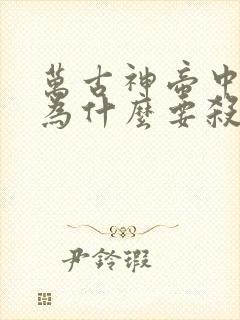 萬古神帝中
為什麼要殺
尹鈴瑕